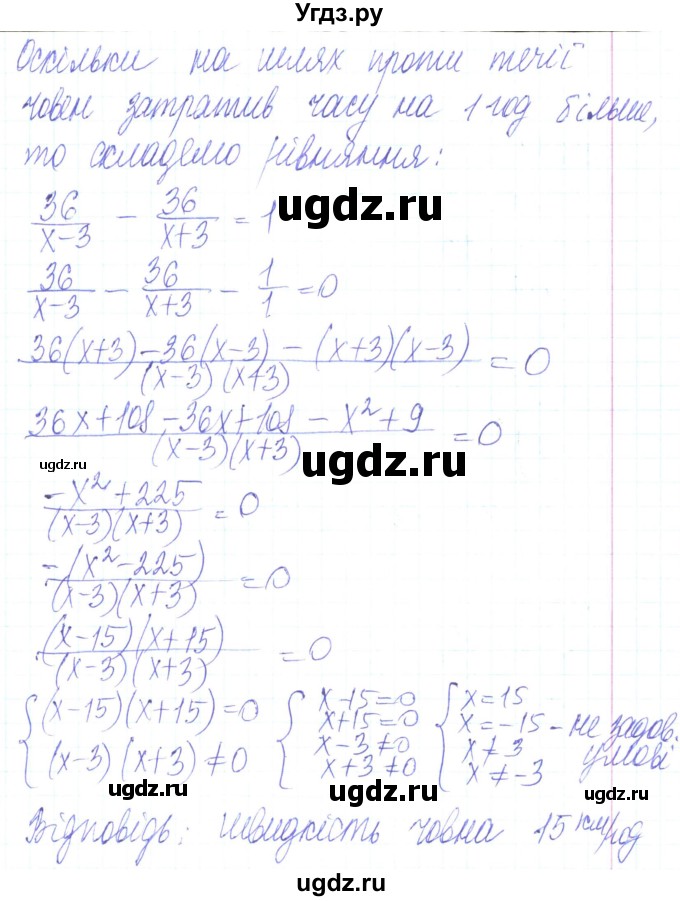 Угдз.ру
Оскільки на шлях проти течії
човен затратив часу на 1 год більше,
то складемо рівняння:
36/(x-3) - 36/(x+3) = 1
ugdz.ru
36/(x-3) - 36/(x+3) - 1/1 = 0
(36(x+3) - 36(x-3) - (x+3)(x-3))/((x-3)(x+3)) = 0
(36x+108-36x+108-x²+9)/((x-3)(x+3)) = 0
ugdz.ru
ugdz.ru
(-x²+225)/((x-3)(x+3)) = 0
ugdz.ru
(-(x²-225))/((x-3)(x+3)) = 0
((x-15)(x+15))/((x-3)(x+3)) = 0
{ (x-15)(x+15)=0 { x-15=0 { x=15
x+15=0 x=-15 - не задов.
(x-3)(x+3)≠0 x-3≠0 x≠3 умові
x+3≠0 x≠-3
ugdz.ru
ugdz.ru
Відповідь: швидкість човна 15 км/год
ugdz.ru